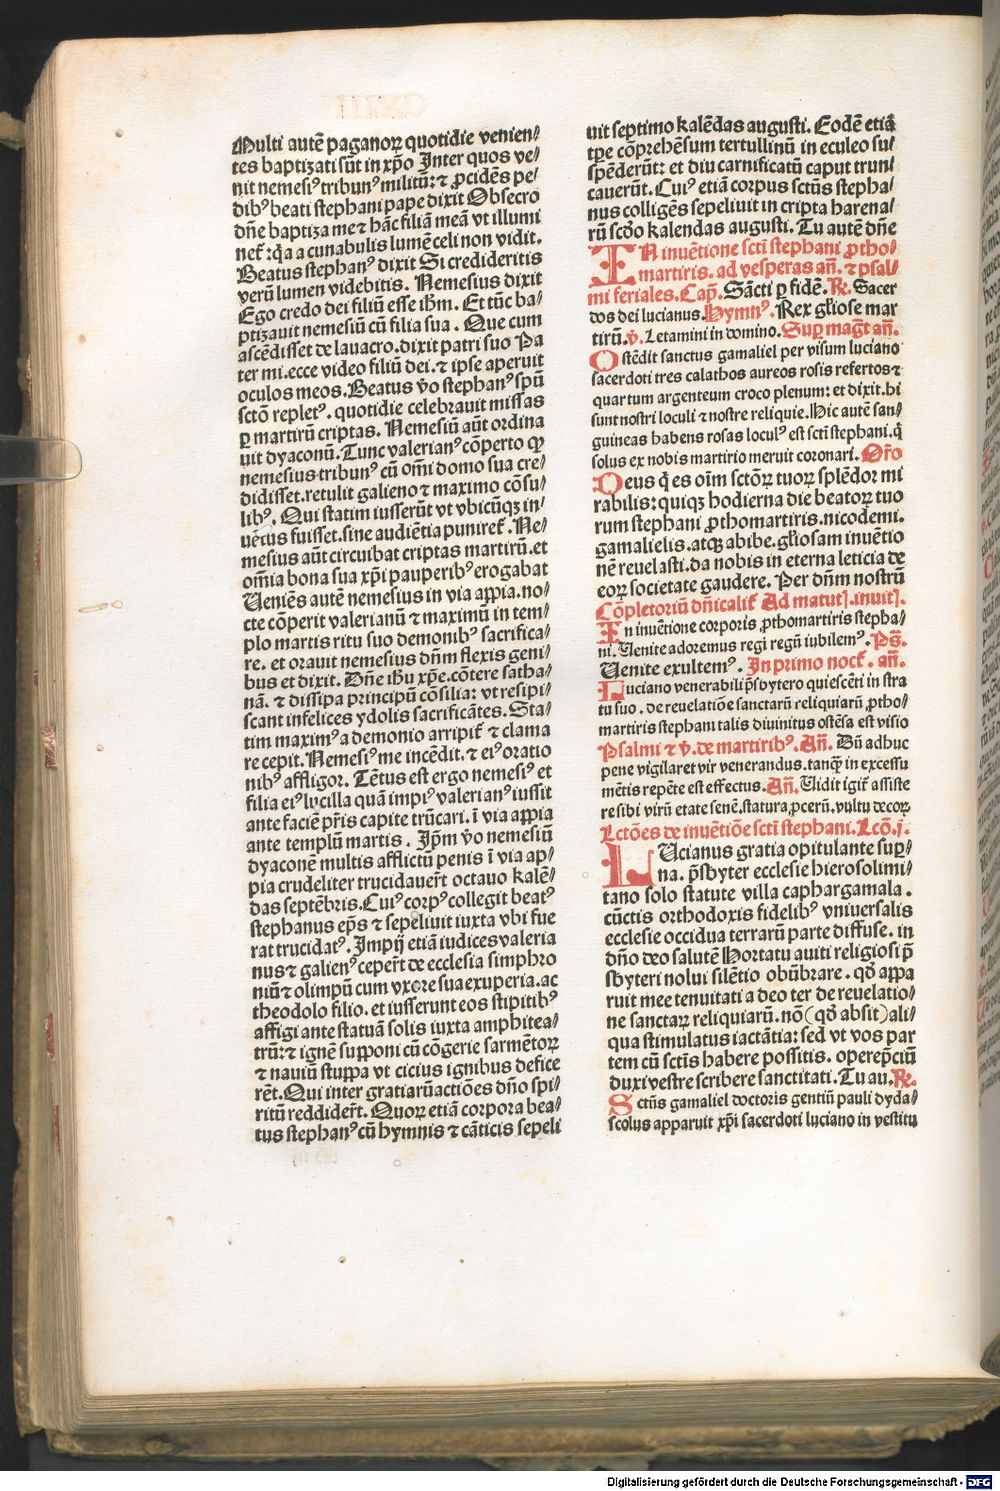 Multi autē paganoꝝ quotidie venien⸗
tes baptizati sūt in xp̄o Inter quos ve⸗
nit nemesiꝰ tribunꝰ militū: ⁊ ꝓcidēs pe⸗
dibꝰ beati stephani pape dixit Obsecro
dn̄e baptiza me ⁊ hāc filiā meā vt illumi
net᷑: q̄a a cunabulis lumē celi non vidit.
Beatus stephanꝰ dixit Si credideritis
verū lumen videbitis. Nemesius dixit
Ego credo dei filiū esse ih̄m. Et tūc ba⸗
ptizauit nemesiū cū filia sua. Que cum
ascēdisset de lauacro. dixit patri suo Pa
ter mi. ecce video filiū dei. ⁊ ipse aperuit
oculos meos. Beatus v̄o stephanꝰ sp̄u
sctō repletꝰ. quotidie celebrauit missas
ꝑ martirū criptas. Nemesiū aūt ordina
uit dyaconū. Tunc valerianꝰ cōperto ꝙ
nemesius tribunꝰ cū om̄i domo sua cre⸗
didisset. retulit galieno ⁊ maximo cōsu⸗
libꝰ. Qui statim iusserūt vt vbicūqꝫ in⸗
uētus fuisset. sine audiētia puniret᷑. Ne⸗
mesius aūt circuibat criptas martirū. et
om̄ia bona sua xp̄i pauperibꝰ erogabat
Ueniēs autē nemesius in via appia. no⸗
cte cōperit valerianū ⁊ maximū in tem⸗
plo martis ritu suo demonibꝰ sacrifica⸗
re. et orauit nemesius dn̄m flexis geni⸗
bus et dixit. Dn̄e ih̄u xp̄e. cōtere satha⸗
nā. ⁊ dissipa principū cōsilia: vt resipi⸗
scant infelices ydolis sacrificātes. Sta⸗
tim maximꝰ a demonio arripit᷑ ⁊ clama
re cepit. Nemesiꝰ me incēdit. ⁊ eiꝰ oratio
nibꝰ affligor. Tētus est ergo nemesiꝰ et
filia eiꝰ lucilla quā impiꝰ valerianꝰ iussit
ante faciē pr̄is capite trūcari. ī via appia
ante templū martis. Ip̄m v̄o nemesiū
dyaconē multis afflictū penis ī via ap⸗
pia crudeliter trucidauer̄t octauo kalē⸗
das septēbris. Cuiꝰ corpꝰ collegit beatꝰ
stephanus ep̄s ⁊ sepeliuit iuxta vbi fue
rat trucidatꝰ. Impij etiā iudices valeria
nus ⁊ galienꝰ ceper̄t de ecclesia simphro
niū ⁊ olimpū cum vxore sua exuperia. ac
theodolo filio. et iusserunt eos stipitibꝰ
affigi ante statuā solis iuxta amphitea⸗
trū: ⁊ ignē supponi cū cōgerie sarmētoꝝ
⁊ nauiū stuppa vt cicius ignibus defice
rēt. Qui inter gratiarū actiōes dn̄o spi⸗
ritū reddider̄t. Quoꝝ etiā corpora bea⸗
tus stephanꝰ cū hymnis ⁊ cāticis sepeli
uit septimo kalēdas augusti. Eodē etiā
tp̄e cōprehēsum tertullinū in eculeo su⸗
spēderūt: et diu carnificatū caput trun⸗
cauerūt. Cuiꝰ etiā corpus sctūs stepha⸗
nus colligēs sepeliuit in cripta harena⸗
rū sc̄do kalendas augusti. Tu autē dn̄e
IN inuētione sctī stephani ꝓtho⸗
martiris. ad vesperas an̄. ⁊ psal⸗
mi feriales. Cap̄. Sācti ꝑ fidē. ℟. Sacer
dos dei lucianus. Hymnꝰ. Rex gl̄iose mar
tirū. ꝟ. Letamini in domino. Suꝑ mag̅t an̄.
Ostēdit sanctus gamaliel per visum luciano
sacerdoti tres calathos aureos rosis refertos ⁊
quartum argenteum croco plenum: et dixit. hi
sunt nostri loculi ⁊ nostre reliquie. Hic autē san⸗
guineas habens rosas loculꝰ est sctī stephani. q̄
solus ex nobis martirio meruit coronari. Or̄o
Deus q̄ es oīm sctōꝝ tuoꝝ splēdor mi
rabilis: quiqꝫ hodierna die beatoꝝ tuo
rum stephani ꝓthomartiris. nicodemi.
gamalielis. atqꝫ abibe. gl̄iosam inuētio
nē reuelasti. da nobis in eterna leticia de
eoꝝ societate gaudere. Per dn̄m nostrū
Cōpletoriū dn̄icalit᷑ Ad matut̄. inuit̄.
In inuētione corporis ꝓthomartiris stepha⸗
ni. Uenite adoremus regi regū iubilemꝰ. Ps̄.
Uenite exultemꝰ. In primo noct᷑. an̄.
Luciano venerabili p̄sbytero quiescēti in stra
tu suo. de reuelatiōe sanctarū reliquiarū ꝓtho⸗
martiris stephani talis diuinitus ostēsa est visio
Psalmi ⁊ ꝟ. de martiribꝰ. An̄. Dū adhuc
pene vigilaret vir venerandus. tanqꝫ in excessu
mētis repēte est effectus. An̄. Uidit igit᷑ assiste
re sibi virū etate senē. statura ꝓcerū. vultu decoꝝ
Lctōes de inuētiōe sctī stephani. Lcō. j.
LUcianus gratia opitulante suꝑ⸗
na. p̄sbyter ecclesie hierosolimi⸗
tano solo statute villa caphargamala.
cūctis orthodoxis fidelibꝰ vniuersalis
ecclesie occidua terrarū parte diffuse. in
dn̄o deo salutē Hortatu auiti religiosi p̄
sbyteri nolui silētio obūbrare. qd̓ appa
ruit mee tenuitati a deo ter de reuelatio⸗
ne sanctaꝝ reliquiarū. nō (qd̓ absit) ali⸗
qua stimulatus iactātia: sed vt vos par
tem cū sctīs habere possitis. opereп̄ciū
duxi vestre scribere sanctitati. Tu au. ℟.
Sctūs gamaliel doctoris gentiū pauli dyda⸗
scolus apparuit xp̄i sacerdoti luciano in vestitu
Digitalisierung gefördert durch die Deutsche Forschungsgemeinschaft - DFG